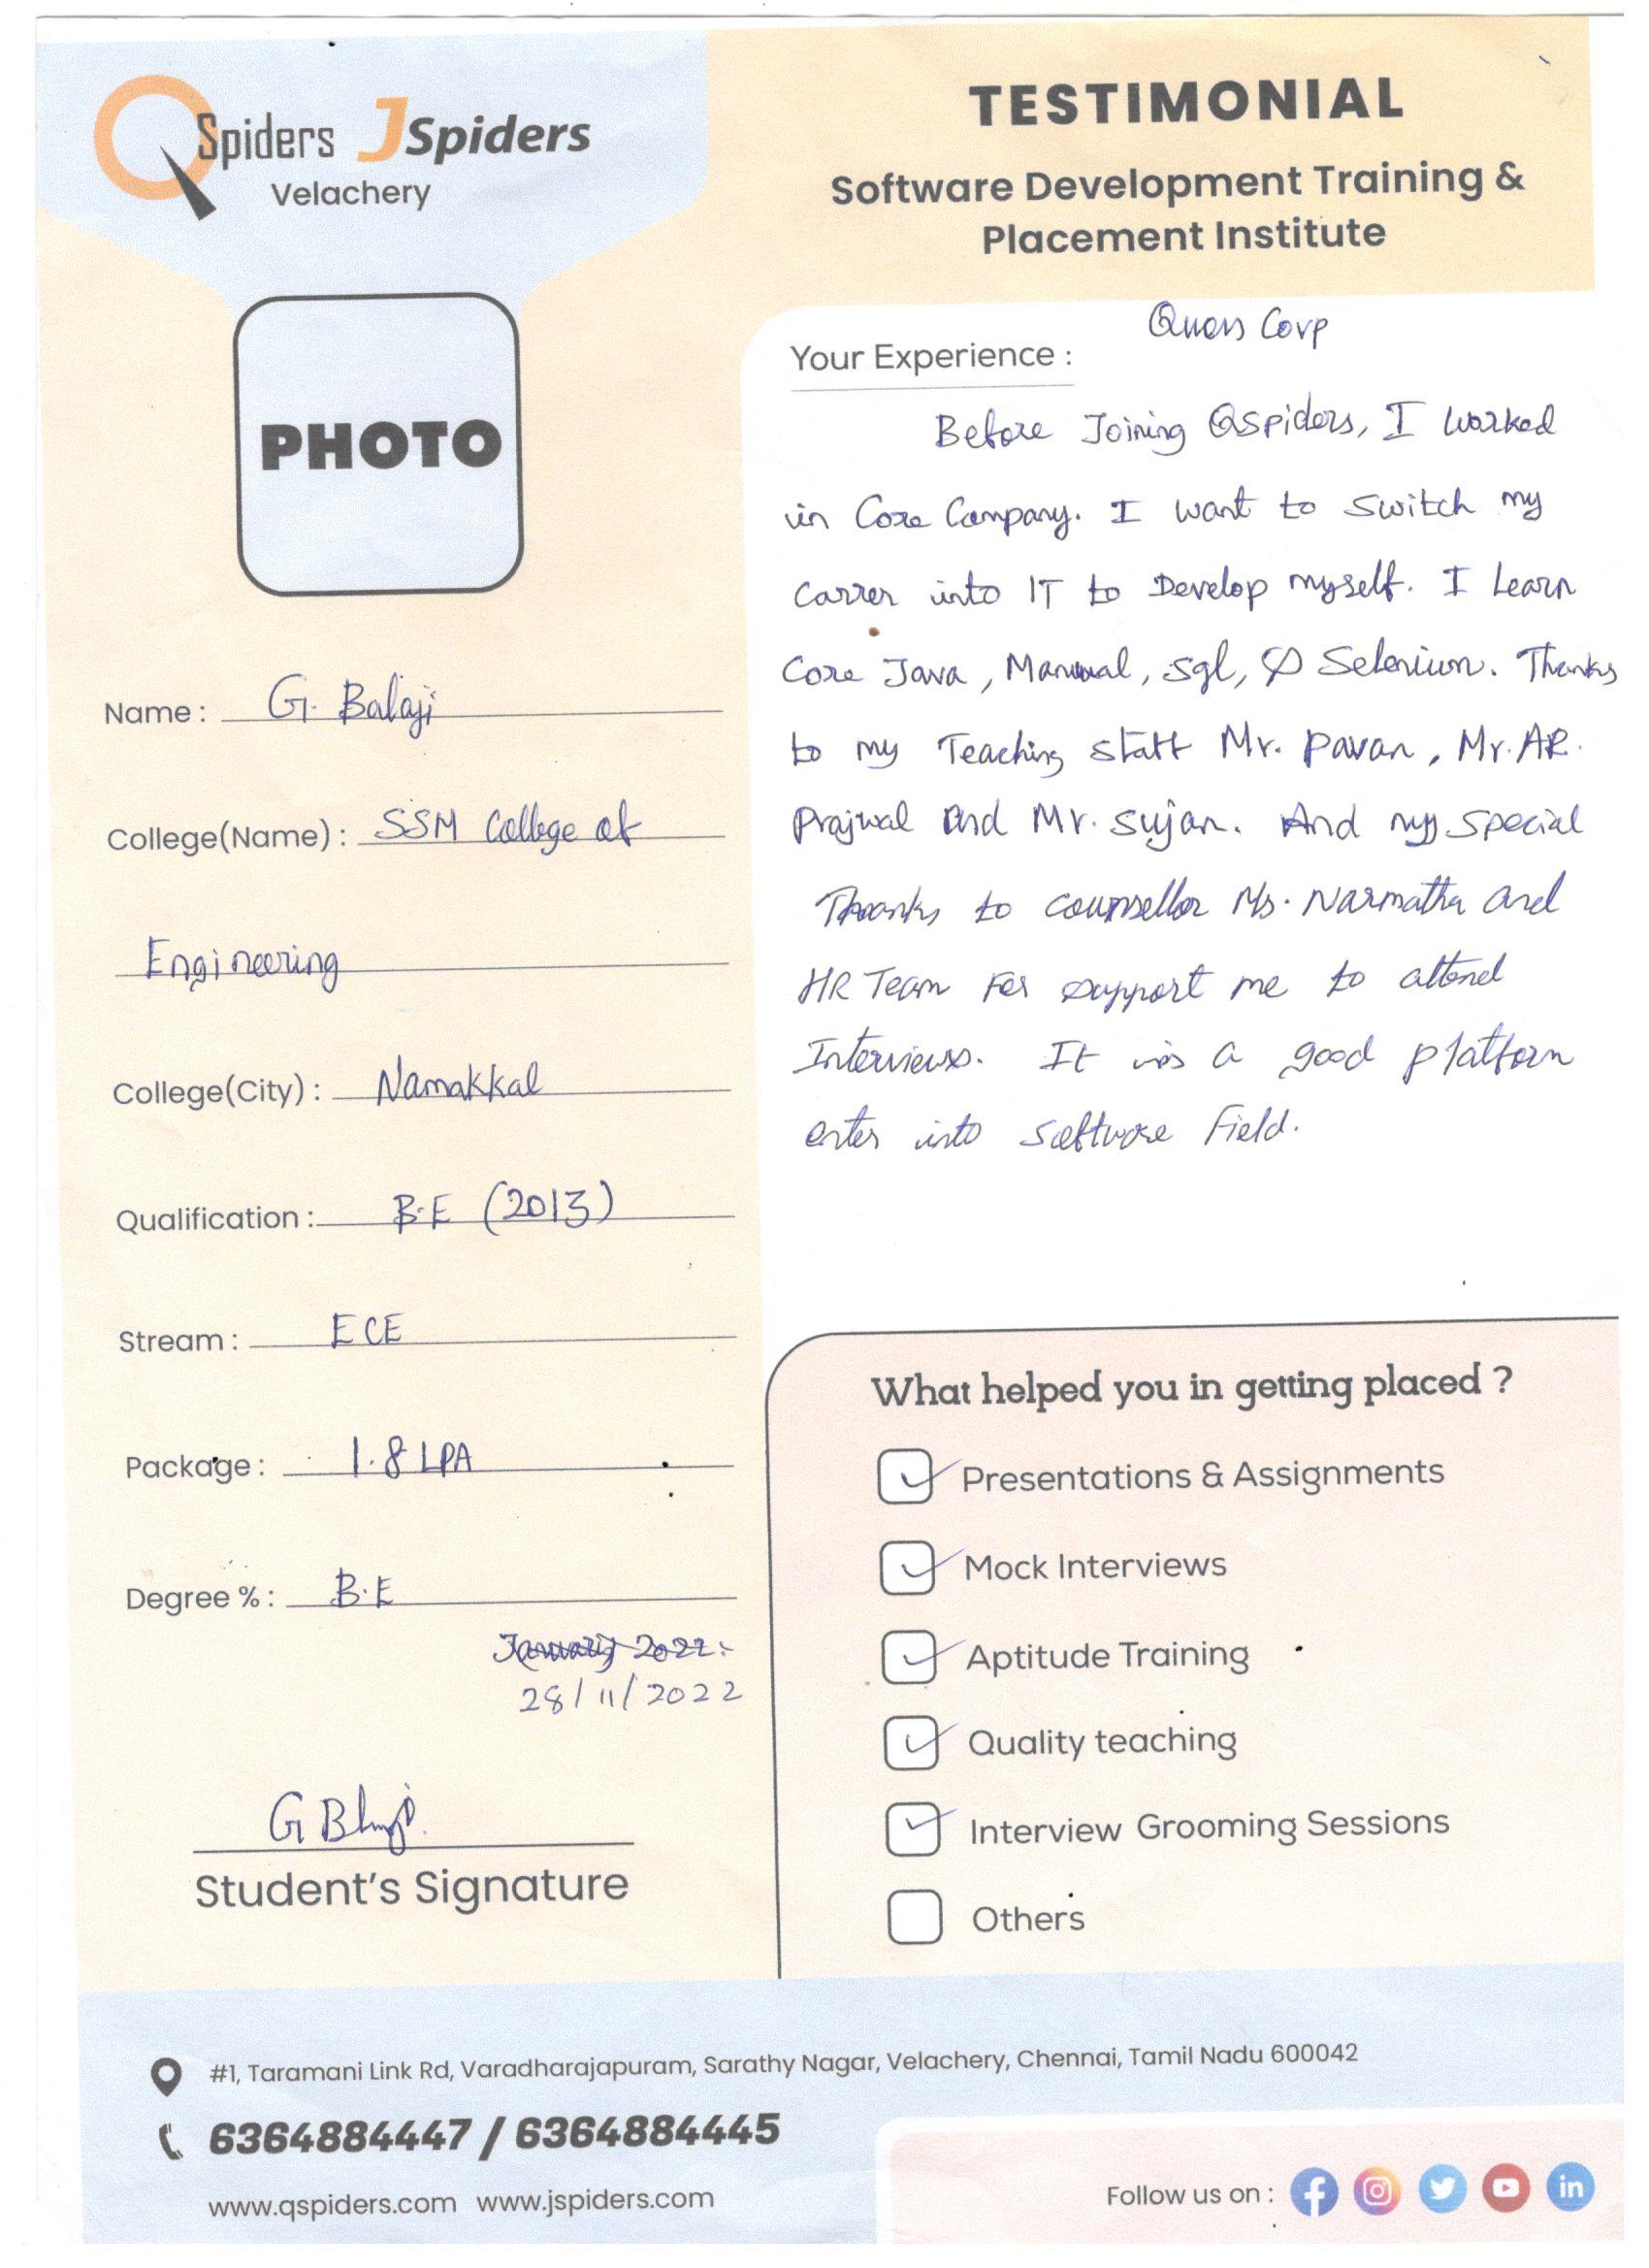 QSpiders JSpiders
Velachery
TESTIMONIAL
Software Development Training &
Placement Institute
PHOTO
Name : G. Balaji
College(Name) : SSM College of
Engineering
College(City) : Namakkal
Qualification : B.E (2013)
Stream : ECE
Package : 1.8 LPA
Degree % : B.E
January 2022.
28/11/2022
G Blaji.
Student's Signature
Quess Corp
Your Experience :
Before Joining Qspiders, I worked
in Core Company. I want to switch my
Carrer into IT to Develop myself. I Learn
Core Java, Manual, Sql, & Selenium. Thanks
to my Teaching staff Mr. Pavan, Mr. AR.
Prajwal and Mr. Sujan. And my special
Thanks to counsellor Ms. Narmatha and
HR Team For support me to attend
Interviews. It is a good platform
enter into software Field.
What helped you in getting placed ?
Presentations & Assignments
Mock Interviews
Aptitude Training
Quality teaching
Interview Grooming Sessions
Others
#1, Taramani Link Rd, Varadharajapuram, Sarathy Nagar, Velachery, Chennai, Tamil Nadu 600042
6364884447 / 6364884445
www.qspiders.com www.jspiders.com
Follow us on :